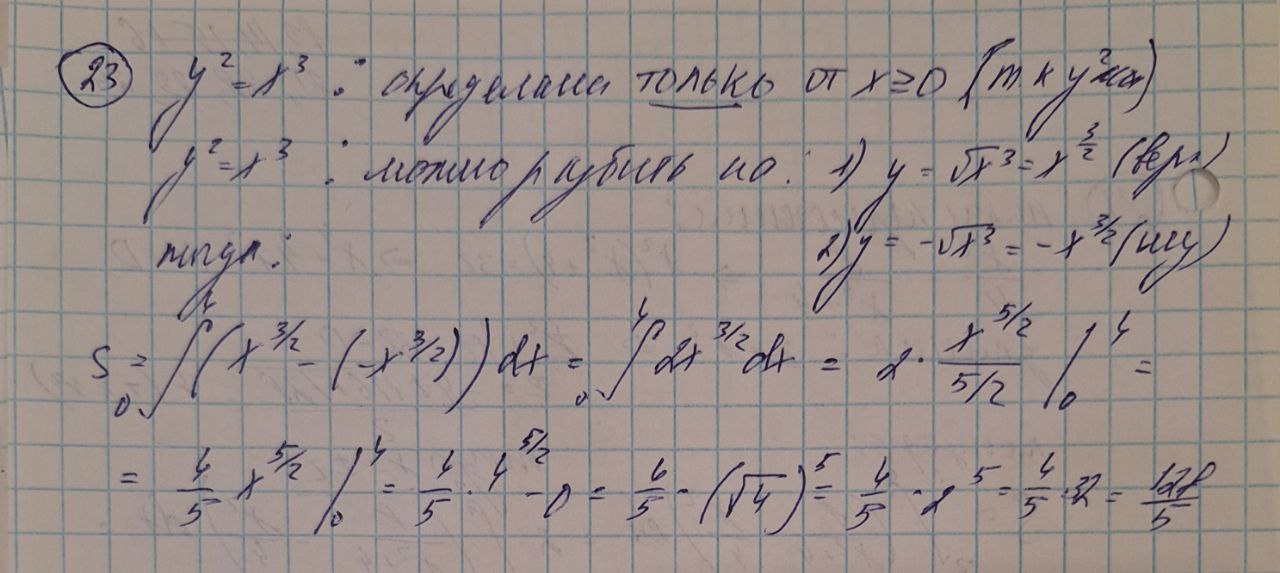 23 y² = x³ : определена только от x ≥ 0 (т.к y²
y² = x³ : можно разбить на: 1) y = √x³ = x^{3/2} (верх)
тогда: 2) y = -√x³ = -x^{3/2} (низ)
S = ∫₀⁴ (x^{3/2} - (-x^{3/2})) dx = ∫₀⁴ 2x^{3/2} dx = 2 · x^{5/2} / 5/2 |₀⁴ =
= 4/5 x^{5/2} |₀⁴ = 4/5 · 4^{5/2} - 0 = 4/5 · (√4)⁵ = 4/5 · 2⁵ = 4/5 · 32 = 128/5